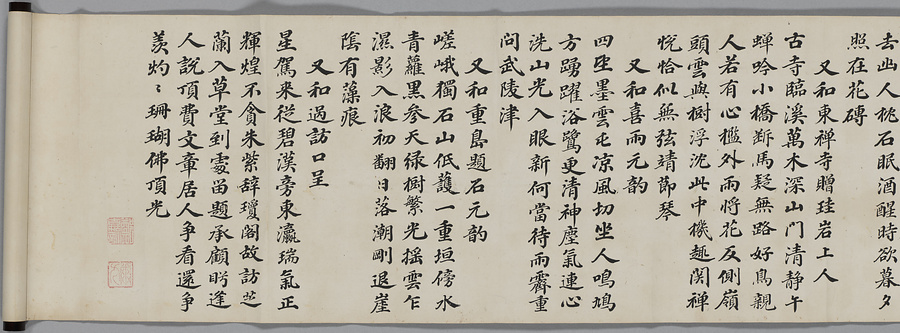 去幽人枕石眠酒醒時欲暮夕
照在花磚
又和東禪寺贈珪岩上人
古寺臨溪萬木深山門清靜午
蟬吟小橋斷馬疑無路好鳥親
人若有心檻外雨將花反側嶺
頭雲與樹浮沈此中機趣関禪
悅恰似無弦靖節琴
又和喜雨元韵
四坐墨雲屯凉風切坐人鳴鳩
方踴躍浴鷺更清神塵氣連心
洗山光入眼新何當待雨霽重
問武陵津
又和重島題石元韵
嵯峨獨石山低護一重垣傍水
青蘿黑参天緑樹繁光搖雲乍
濕影入浪初翻日落潮剛退崖
陰有藻痕
又和過訪口呈
星駕来從碧漢旁東瀛瑞氣正
輝煌不貪朱紫辞瓊閣故訪芝
蘭入草堂到處留題承顧眄逢
人說項費文章居人争看還争
羨灼〻珊瑚佛頂光